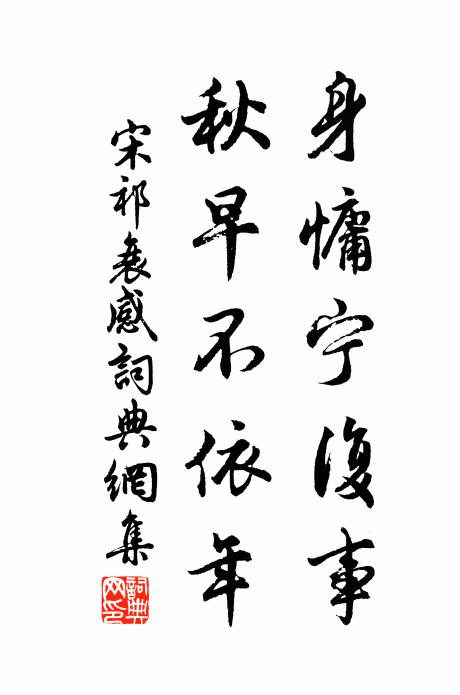 身慵宁復事
秋早不依年
宋祁衰感詞典網集
詞典網印